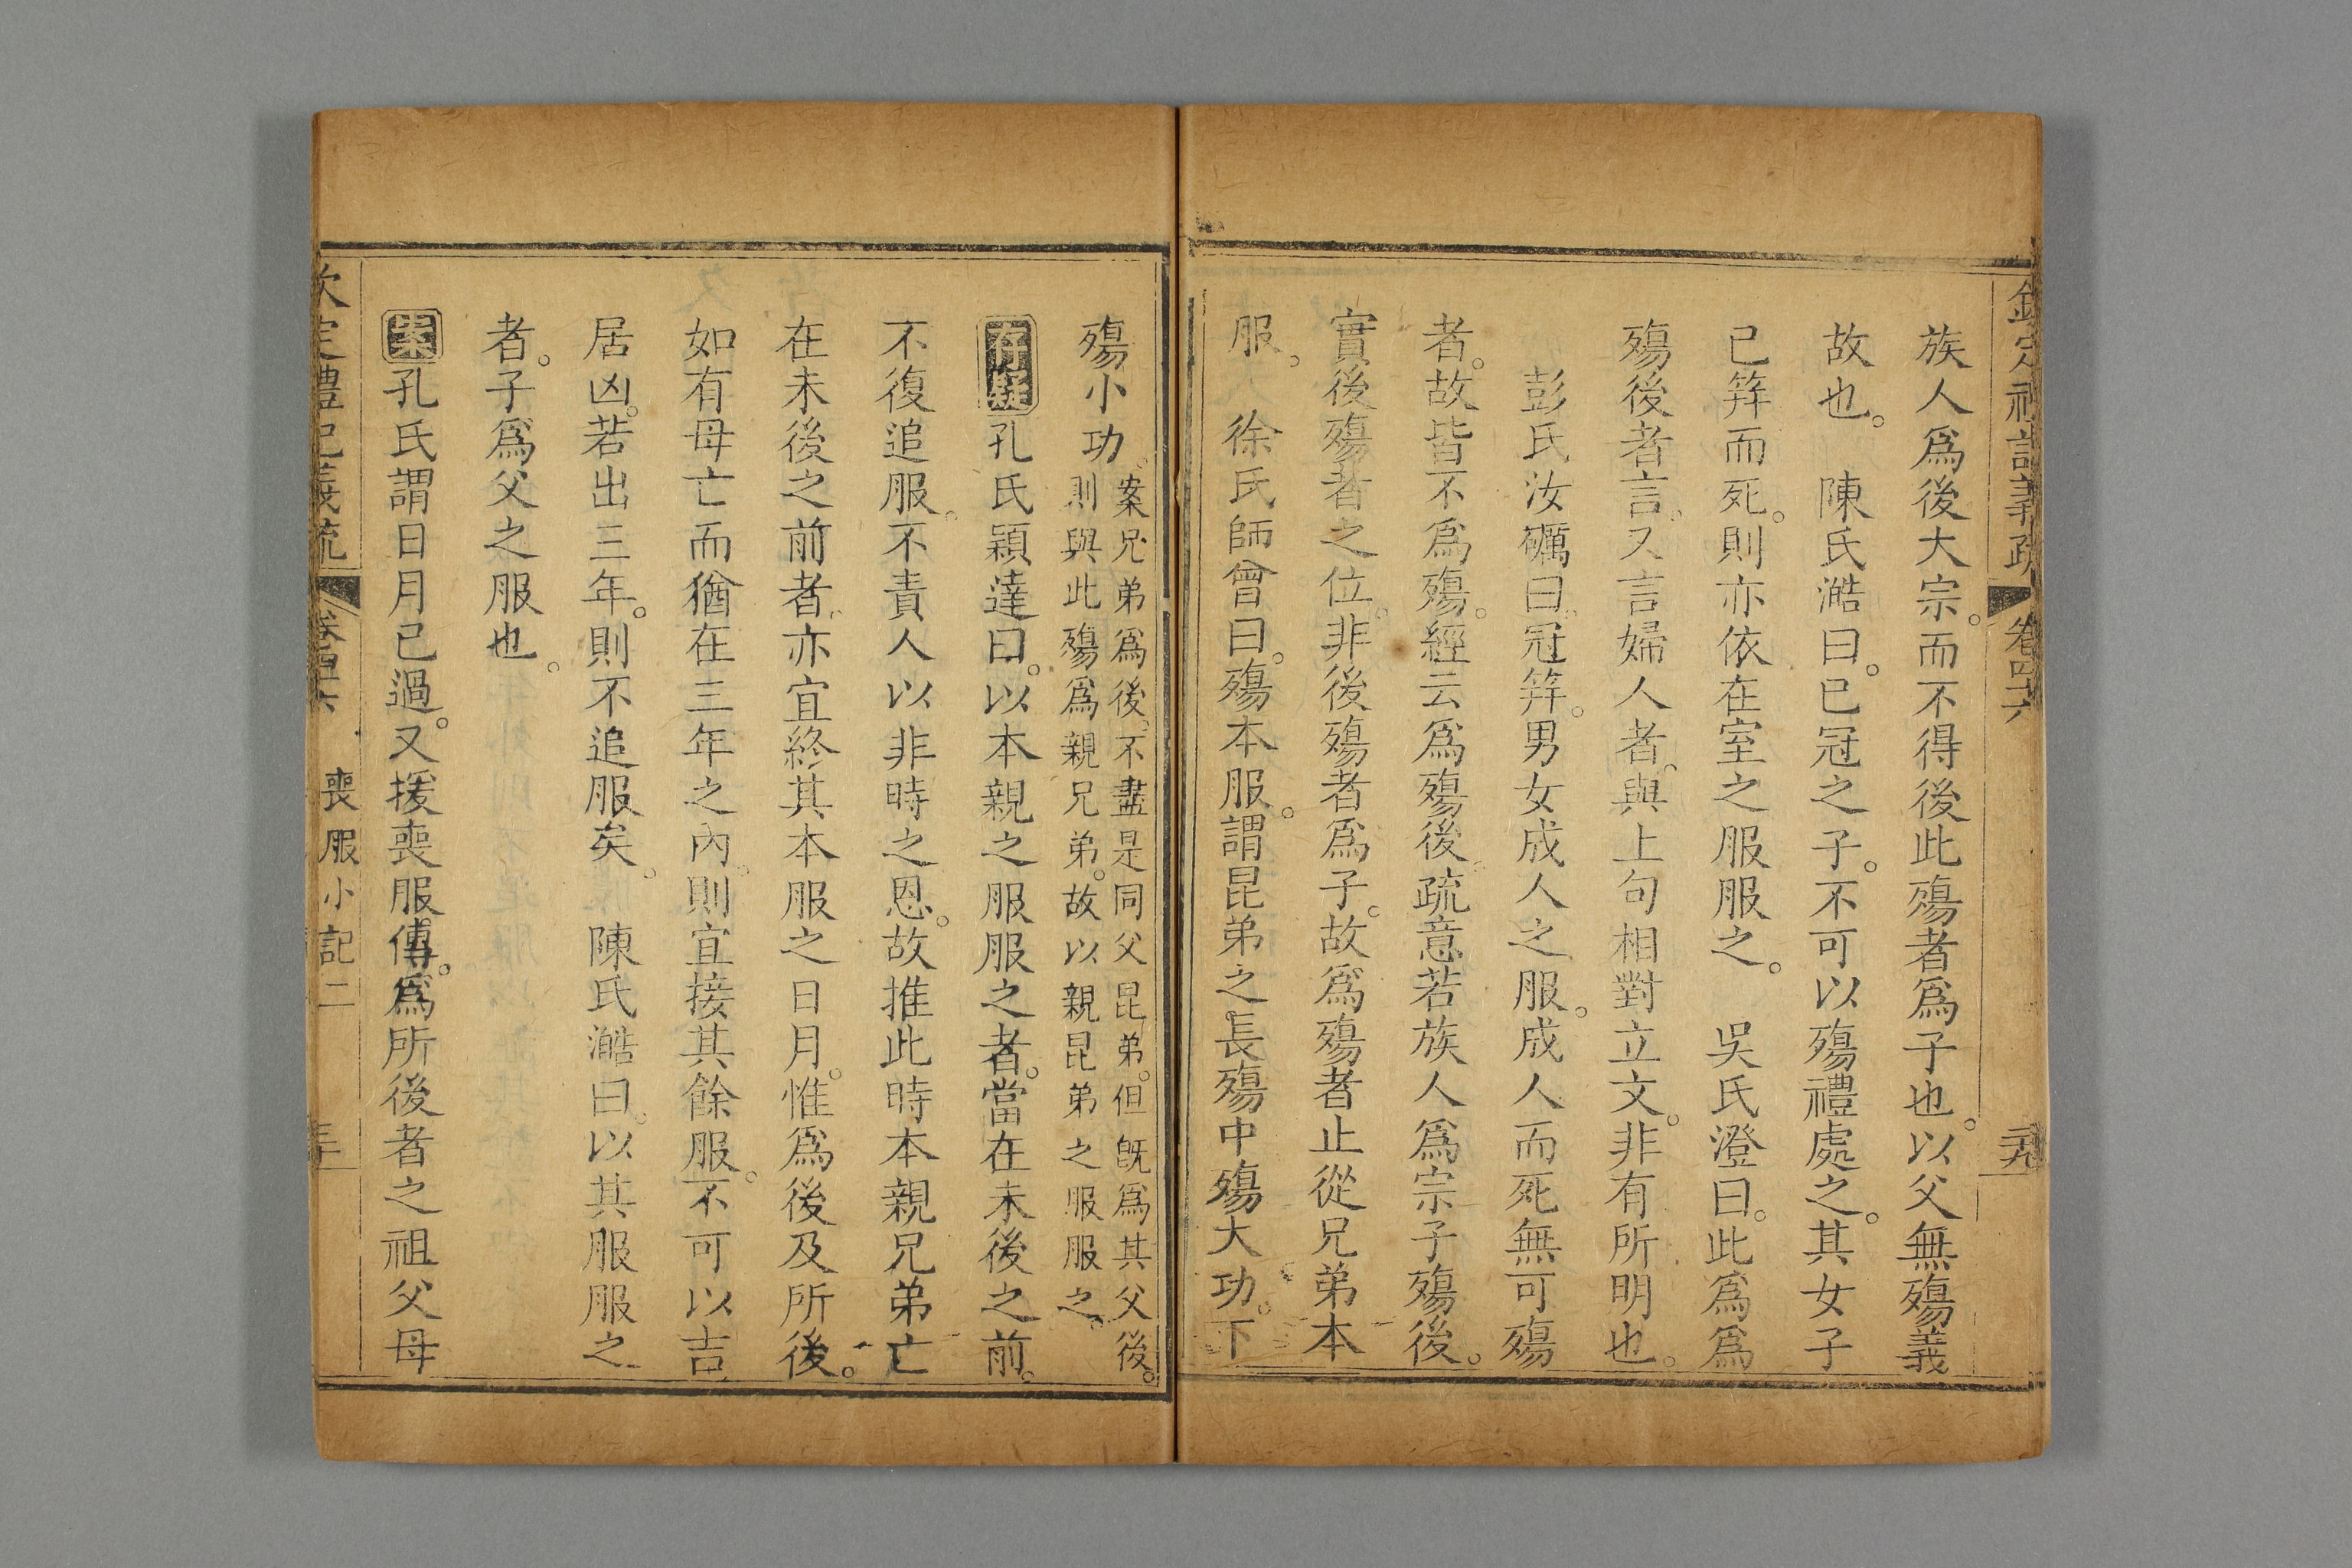 欽定禮記義疏 卷四十六 二十九
族人爲後大宗。而不得後此殤者爲子也。以父無殤義
故也。 陳氏澔曰。已冠之子。不可以殤禮處之。其女子
已笄而死。則亦依在室之服服之。 吳氏澄曰。此爲爲
殤後者言。又言婦人者。與上句相對立文。非有所明也。
彭氏汝礪曰。冠笄。男女成人之服。成人而死無可殤
者。故皆不爲殤。經云爲殤後。疏意若族人爲宗子殤後。
實後殤者之位。非後殤者爲子。故爲殤者止從兄弟本
服。 徐氏師曾曰。殤本服。謂昆弟之長殤中殤大功。下
殤小功。案兄弟爲後。不盡是同父昆弟。但旣爲其父後。
則與此殤爲親兄弟。故以親昆弟之服服之。
存疑孔氏穎達曰。以本親之服服之者。當在未後之前。
不復追服。不責人以非時之恩。故推此時本親兄弟亡
在未後之前者。亦宜終其本服之日月。惟爲後及所後。
如有母亡而猶在三年之內。則宜接其餘服。不可以吉
居凶。若出三年。則不追服矣。 陳氏澔曰。以其服服之
者。子爲父之服也。
案孔氏謂日月已過。又援喪服傳。爲所後者之祖父母
欽定禮記義疏 卷四十六 喪服小記二 三十